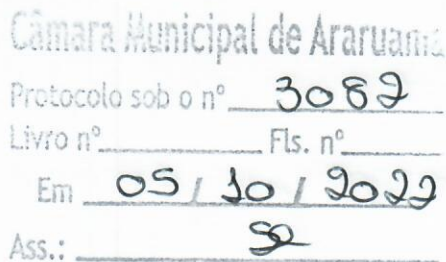 Câmara Municipal de Araruama
Protocolo sob o nº 3082
Livro nº Fls. nº
Em 05 / 10 / 2022
Ass.: